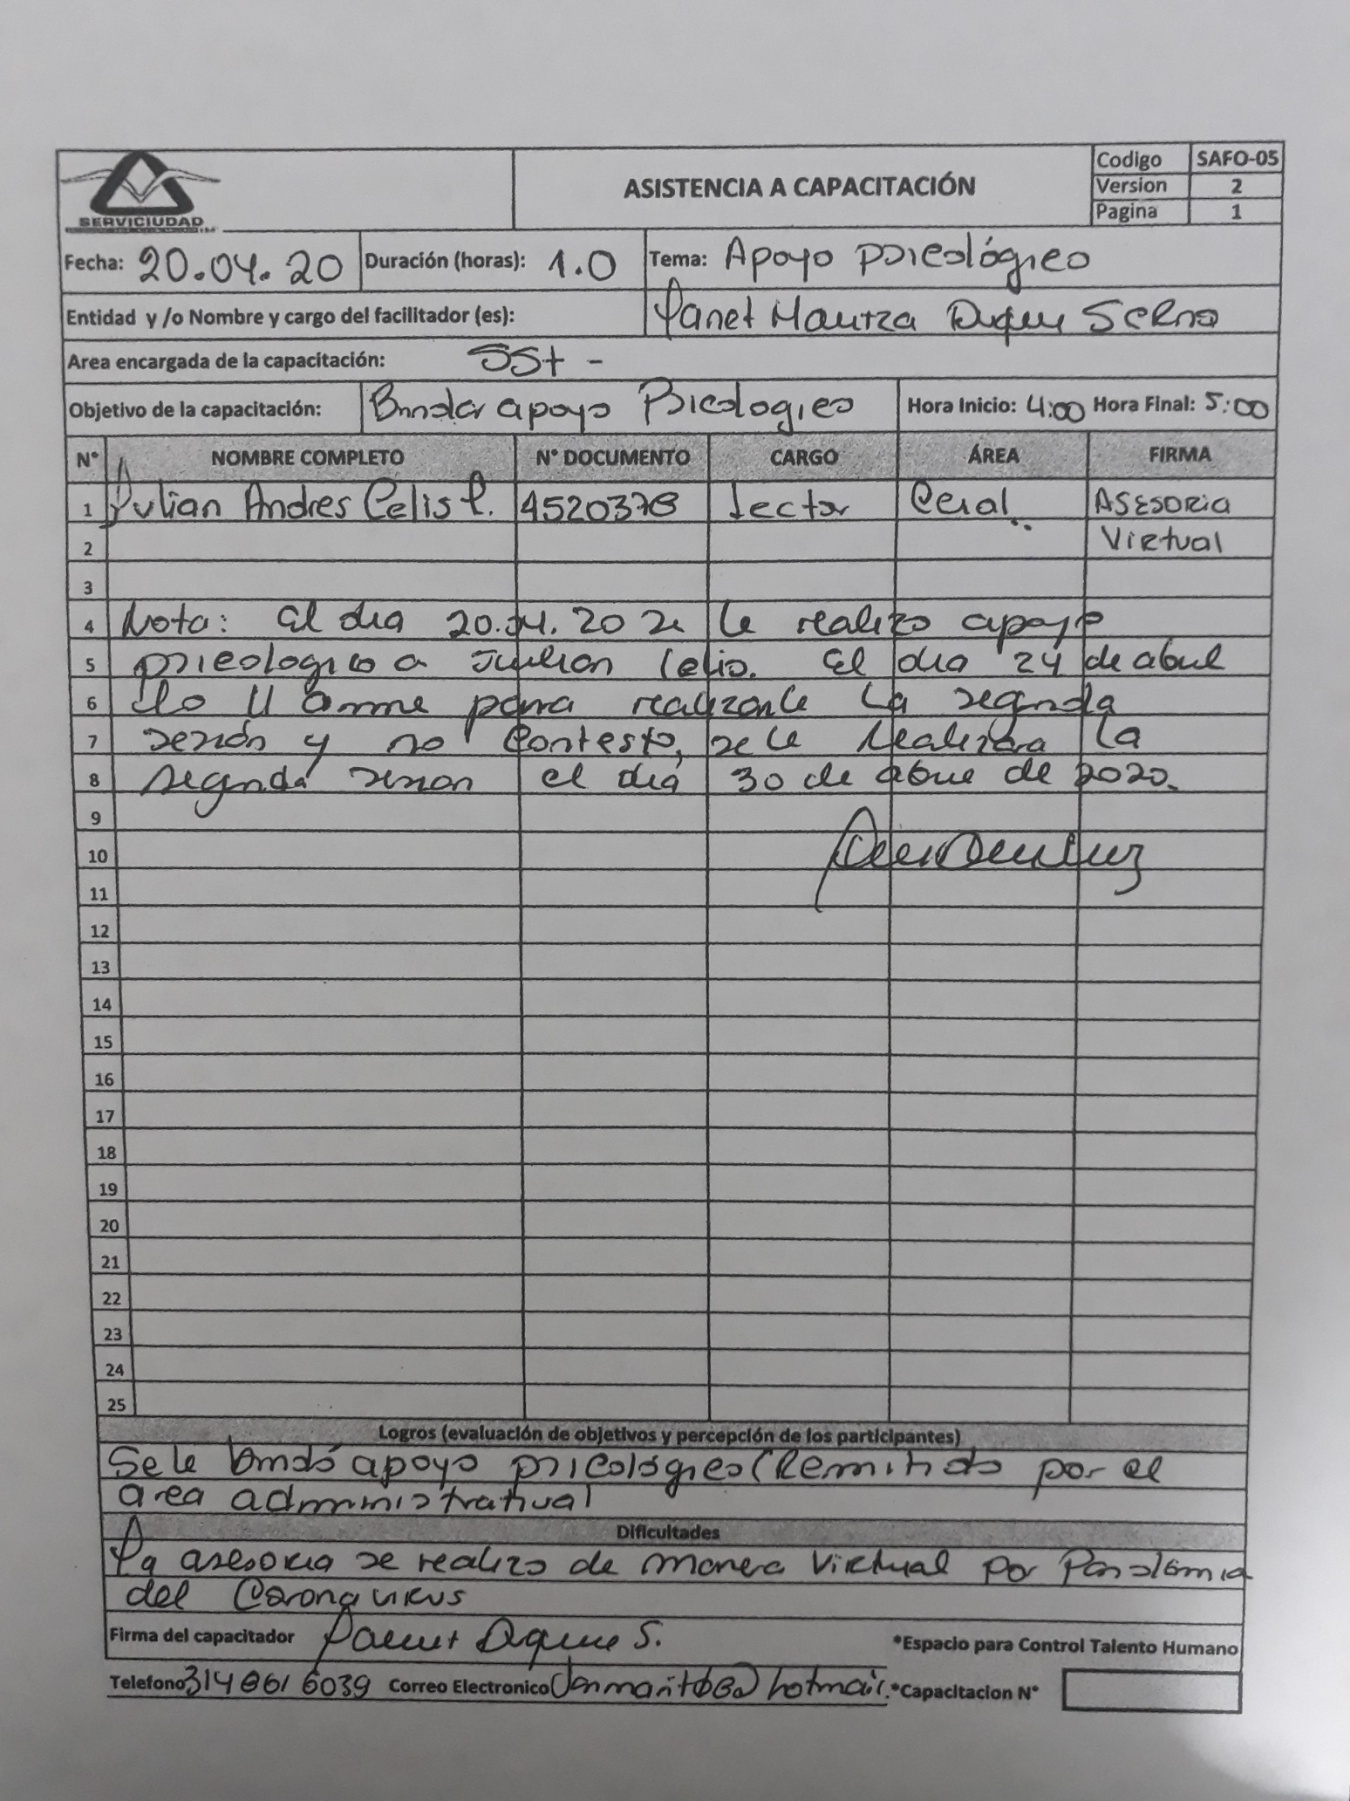 SERVICIUDAD
ASISTENCIA A CAPACITACIÓN
Codigo SAFO-05
Version 2
Pagina 1
Fecha: 20.04.20 Duración (horas): 1.0 Tema: Apoyo psicológico
Entidad y /o Nombre y cargo del facilitador (es): Yanet Maritza Duque Serna
Area encargada de la capacitación: SST -
Objetivo de la capacitación: Brindar apoyo Psicologico Hora Inicio: 4:00 Hora Final: 5:00
N° NOMBRE COMPLETO N° DOCUMENTO CARGO ÁREA FIRMA
1 Julian Andres Celis P. 4520378 Lector ASESORIA
2 Virtual
3
4 Nota: El dia 20.04.20 se le realizo apoyo
5 psicologico a Julian Celis. El dia 24 de abril
6 lo llame para realizarle la segunda
7 sesión y no contesto, se le realizara la
8 segunda sesion el dia 30 de abril de 2020.
9
10
11
12
13
14
15
16
17
18
19
20
21
22
23
24
25
Logros (evaluación de objetivos y percepción de los participantes)
Se le brindó apoyo psicológico (Remitido por el
area administrativa)
Dificultades
La asesoria se realizo de manera virtual por Pandemia
del Coronavirus
Firma del capacitador Yanet Duque S. *Espacio para Control Talento Humano
Telefono 314 861 6039 Correo Electronico *Capacitacion N°